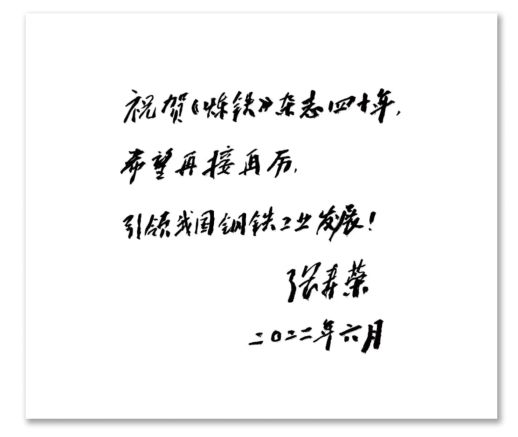 祝贺《炼铁》杂志四十年,
希望再接再厉,
引领我国钢铁工业发展!
张寿荣
二〇二二年六月